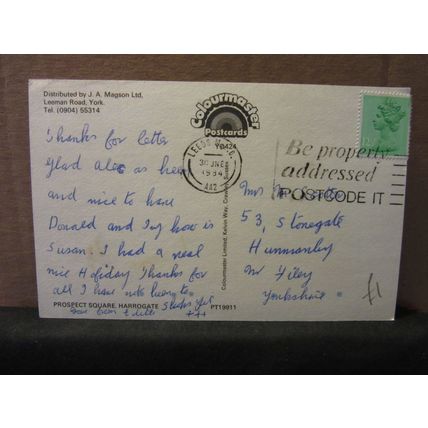 Distributed by J. A. Magson Ltd,
Leeman Road, York.
Tel. (0904) 55314
Colourmaster
Postcards
YO424
Thanks for letter
Glad Alec as been
and nice to have
Donald and Ivy how is
Susan. I had a real
nice Holiday Thanks for
all I have
love from
PROSPECT SQUARE, HARROGATE
PT19911
Colourmaster Limited, Kelvin Way, Crawley, Sussex
LEEDS
30 JNE
1984
Be properly
addressed
POSTCODE IT
Mrs
53, Stonegate
Hunmanby
Nr Filey
Yorkshire
£1